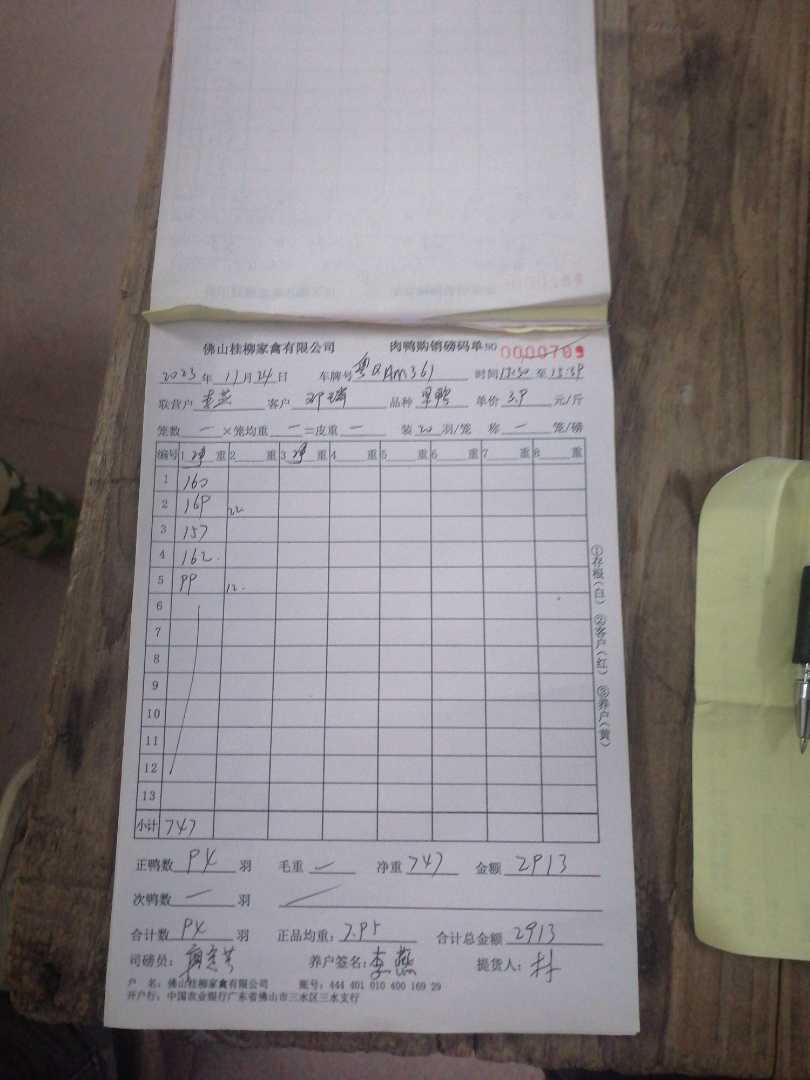 佛山桂柳家禽有限公司 肉鸭购销磅码单 NO 0000789
2023年11月24日 车牌号粤QAm361 时间 至15:39
联营户 客户邓瑞 品种 单价3.9元/斤
笼数一×笼均重一=皮重一 装20羽/笼 称一笼/磅
编号 1净重 2重 3净重 4重 5重 6重 7重 8重
1 160
2 169 22
3 157
4 162
5 99 12
6
7
8
9
10
11
12
13
小计 747
①存根(白) ②客户(红) ③养户(黄)
正鸭数94羽 毛重一 净重747 金额2913
次鸭数一羽
合计数94羽 正品均重:7.95 合计总金额2913
司磅员: 养户签名:李燕 提货人:林
户 名:佛山桂柳家禽有限公司 账号:444 401 010 400 169 29
开户行:中国农业银行广东省佛山市三水区三水支行